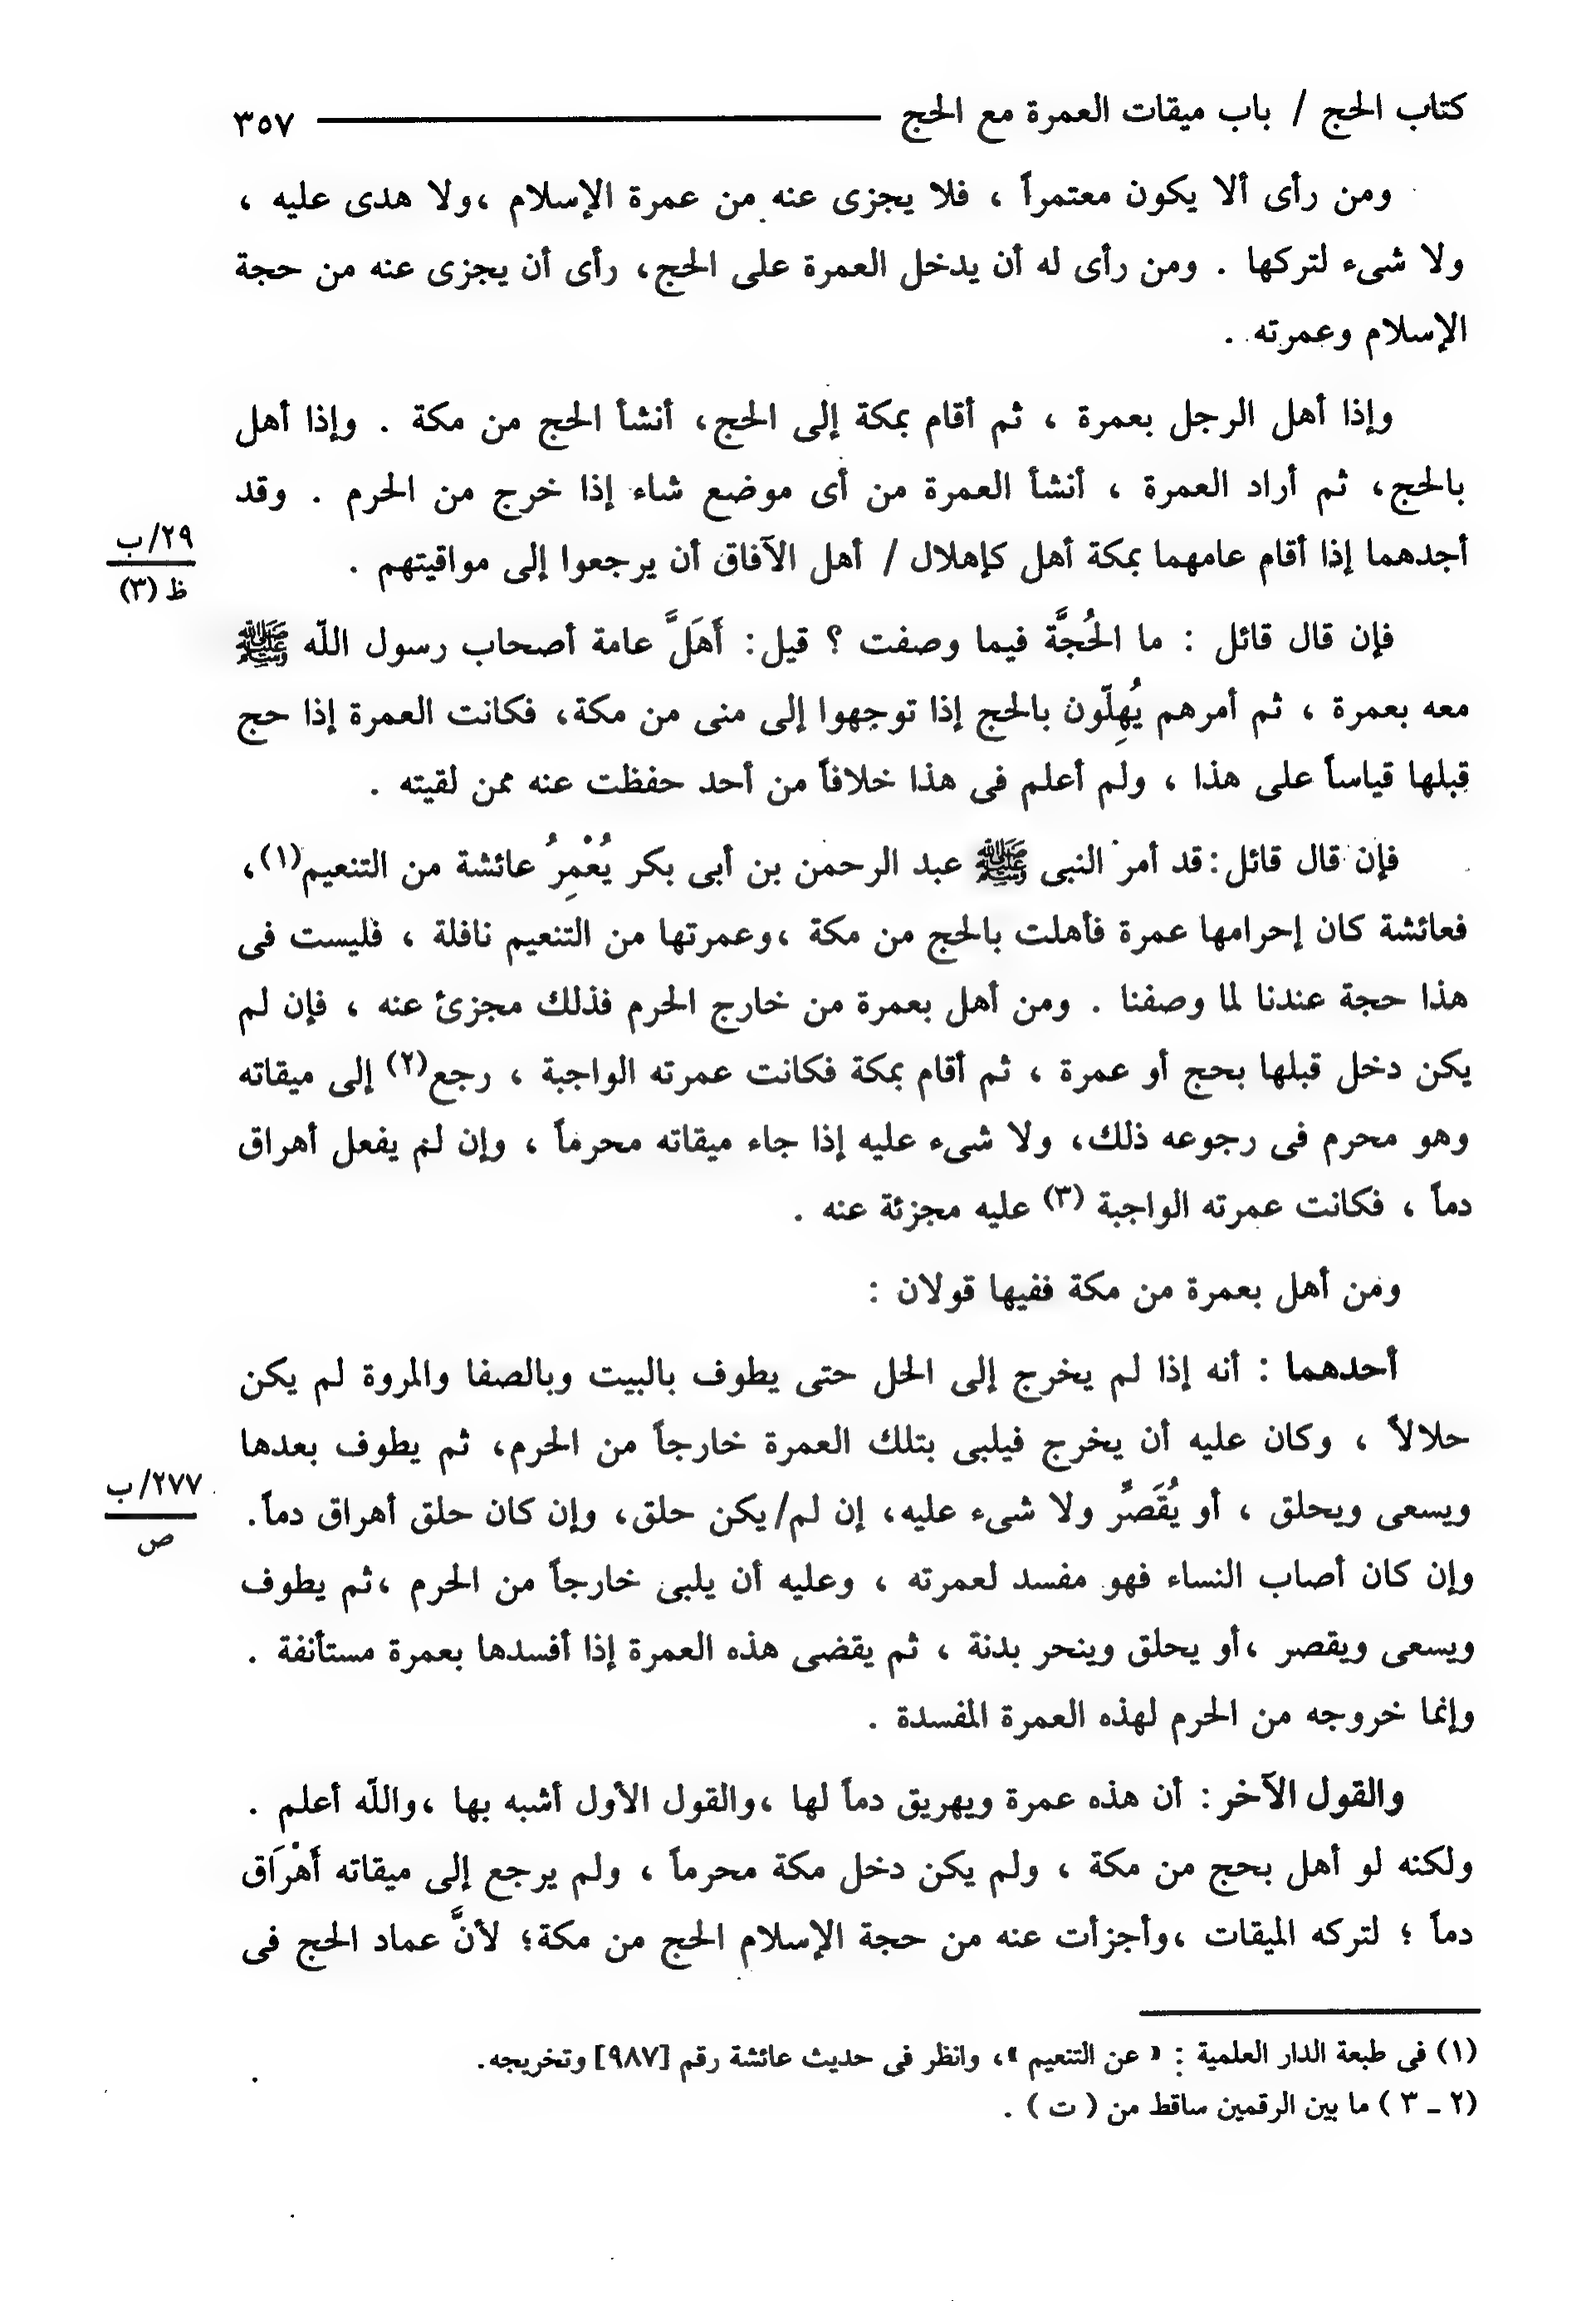 كتاب الحج / باب ميقات العمرة مع الحج ٣٥٧
ومن رأى ألا يكون معتمراً ، فلا يجزى عنه من عمرة الإسلام ،ولا هدى عليه ،
ولا شىء لتركها . ومن رأى له أن يدخل العمرة على الحج، رأى أن يجزى عنه من حجة
الإسلام وعمرته .
وإذا أهل الرجل بعمرة ، ثم أقام بمكة إلى الحج، أنشأ الحج من مكة . وإذا أهل
بالحج، ثم أراد العمرة ، أنشأ العمرة من أى موضع شاء إذا خرج من الحرم . وقد
أجدهما إذا أقام عامهما بمكة أهل كإهلال / أهل الآفاق أن يرجعوا إلى مواقيتهم .
٢٩/ب
ظ (٣)
فإن قال قائل : ما الحُجَّة فيما وصفت ؟ قيل: أَهَلَّ عامة أصحاب رسول اللّه ﷺ
معه بعمرة ، ثم أمرهم يُهِلّون بالحج إذا توجهوا إلى منى من مكة، فكانت العمرة إذا حج
قبلها قياساً على هذا ، ولم أعلم فى هذا خلافاً من أحد حفظت عنه ممن لقيته .
فإن قال قائل: قد أمر النبى ﷺ عبد الرحمن بن أبى بكر يُعْمِرُ عائشة من التنعيم(١)،
فعائشة كان إحرامها عمرة فأهلت بالحج من مكة ،وعمرتها من التنعيم نافلة ، فليست فى
هذا حجة عندنا لما وصفنا . ومن أهل بعمرة من خارج الحرم فذلك مجزئ عنه ، فإن لم
يكن دخل قبلها بحج أو عمرة ، ثم أقام بمكة فكانت عمرته الواجبة ، رجع(٢) إلى ميقاته
وهو محرم فى رجوعه ذلك، ولا شىء عليه إذا جاء ميقاته محرماً ، وإن لم يفعل أهراق
دماً ، فكانت عمرته الواجبة (٣) عليه مجزئة عنه .
ومن أهل بعمرة من مكة ففيها قولان :
أحدهما : أنه إذا لم يخرج إلى الحل حتى يطوف بالبيت وبالصفا والمروة لم يكن
حلالاً ، وكان عليه أن يخرج فيلبى بتلك العمرة خارجاً من الحرم، ثم يطوف بعدها
ويسعى ويحلق ، أو يُقَصِّر ولا شىء عليه، إن لم/ يكن حلق، وإن كان حلق أهراق دماً.
٢٧٧/ب
ص
وإن كان أصاب النساء فهو مفسد لعمرته ، وعليه أن يلبى خارجاً من الحرم ،ثم يطوف
ويسعى ويقصر ،أو يحلق وينحر بدنة ، ثم يقضى هذه العمرة إذا أفسدها بعمرة مستأنفة .
وإنما خروجه من الحرم لهذه العمرة المفسدة .
والقول الآخر: أن هذه عمرة ويهريق دماً لها ،والقول الأول أشبه بها ،واللّه أعلم .
ولكنه لو أهل بحج من مكة ، ولم يكن دخل مكة محرماً ، ولم يرجع إلى ميقاته أَهْرَاق
دماً ؛ لتركه الميقات ،وأجزأت عنه من حجة الإسلام الحج من مكة؛ لأنَّ عماد الحج فى
(١) فى طبعة الدار العلمية : « عن التنعيم »، وانظر فى حديث عائشة رقم [٩٨٧] وتخريجه.
(٢ ـ ٣ ) ما بين الرقمين ساقط من ( ت ) .